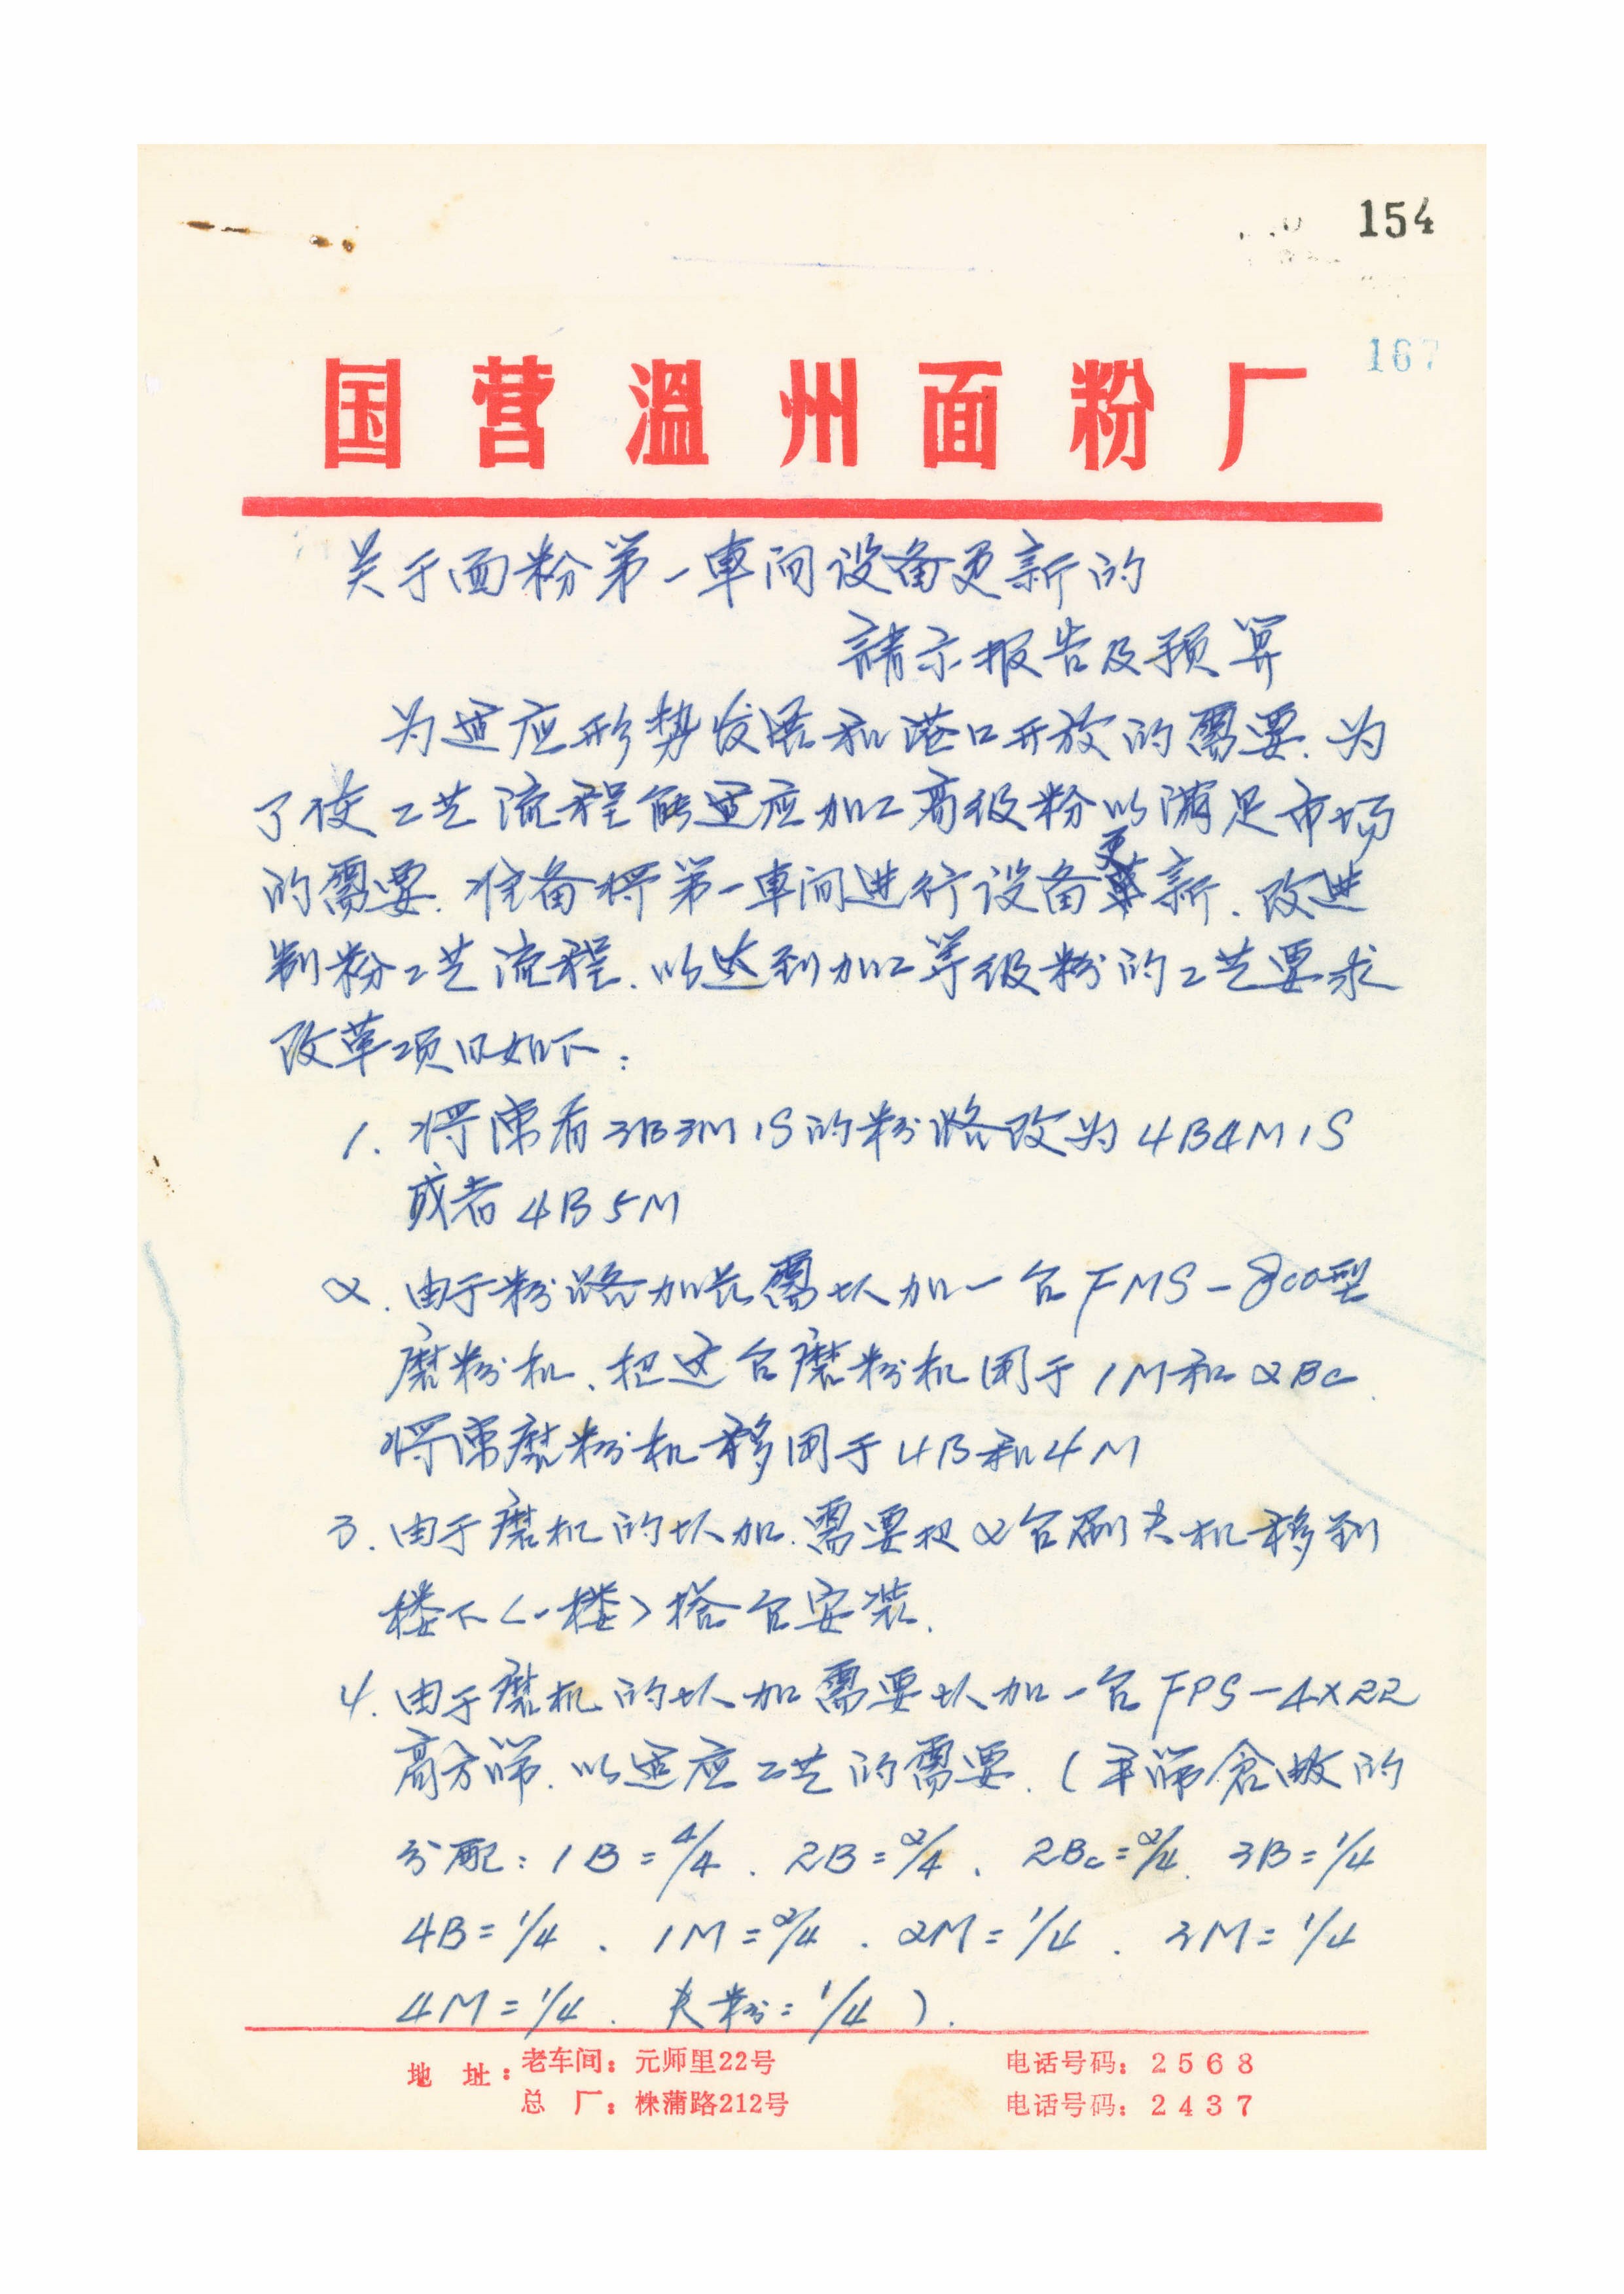 154
167
国营温州面粉厂
关于面粉第一車间设备更新的
請示报告及预算
为适应形势发展和港口开放的需要.为
了使工艺流程能适应加工高级粉以满足市场
的需要.准备将第一車间进行设备更新、改进
制粉工艺流程.以达到加工等级粉的工艺要求
改革项目如下:
1. 将原有3B3M1S的粉路改为4B4M1S
或者4B5M
2. 由于粉路加长需坿加一台FMS-800型
磨粉机、把这台磨粉机用于1M和2Bc.
将原磨粉机移用于4B和4M
3. 由于磨机的坿加.需要把2台刷夫机移到
楼下<一楼>搭台安装.
4. 由于磨机的坿加需要坿加一台FPS-4X22
高方筛.以适应工艺的需要.(平筛倉数的
分配:1B=4/4、2B=2/4、2Bc=2/4、3B=1/4
4B=1/4、1M=2/4、2M=1/4、3M=1/4
4M=1/4、夫粉=1/4).
地址:老车间:元师里22号 电话号码:2568
总厂:株蒲路212号 电话号码:2437